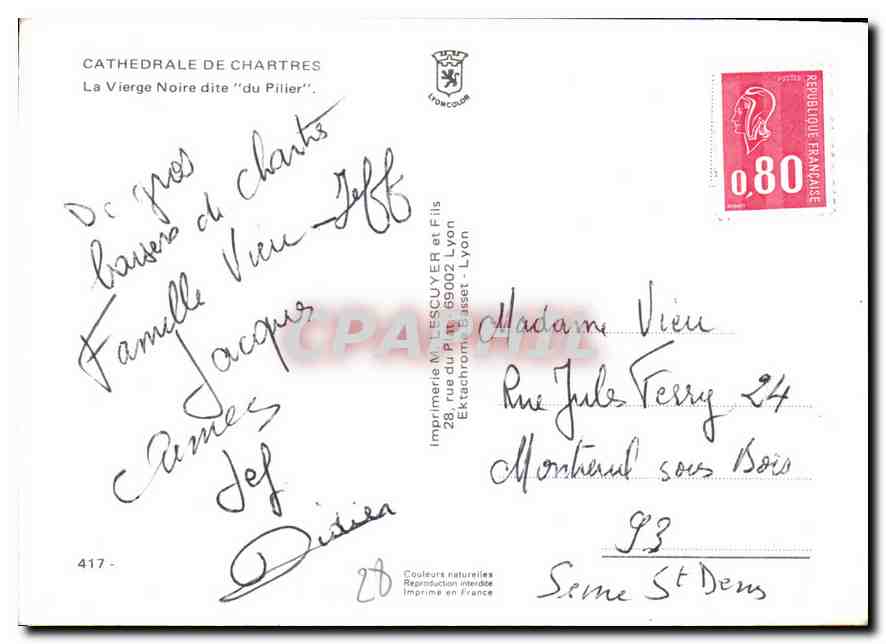 CATHEDRALE DE CHARTRES
La Vierge Noire dite "du Pilier".
LYONCOLOR
POSTES
REPUBLIQUE FRANÇAISE
0,80
De gros
baisers de Chartres
Famille Vieu Jeff
Jacques
Jef
Didier
417 -
28
Imprimerie M. LESCUYER et Fils
28, rue du Plat - 69002 Lyon
Ektachrome Basset - Lyon
CPAPHIL
Madame Vieu
Rue Jules Ferry 24
Montreuil sous Bois
93
Seine St Denis
Couleurs naturelles
Reproduction interdite
Imprimé en France